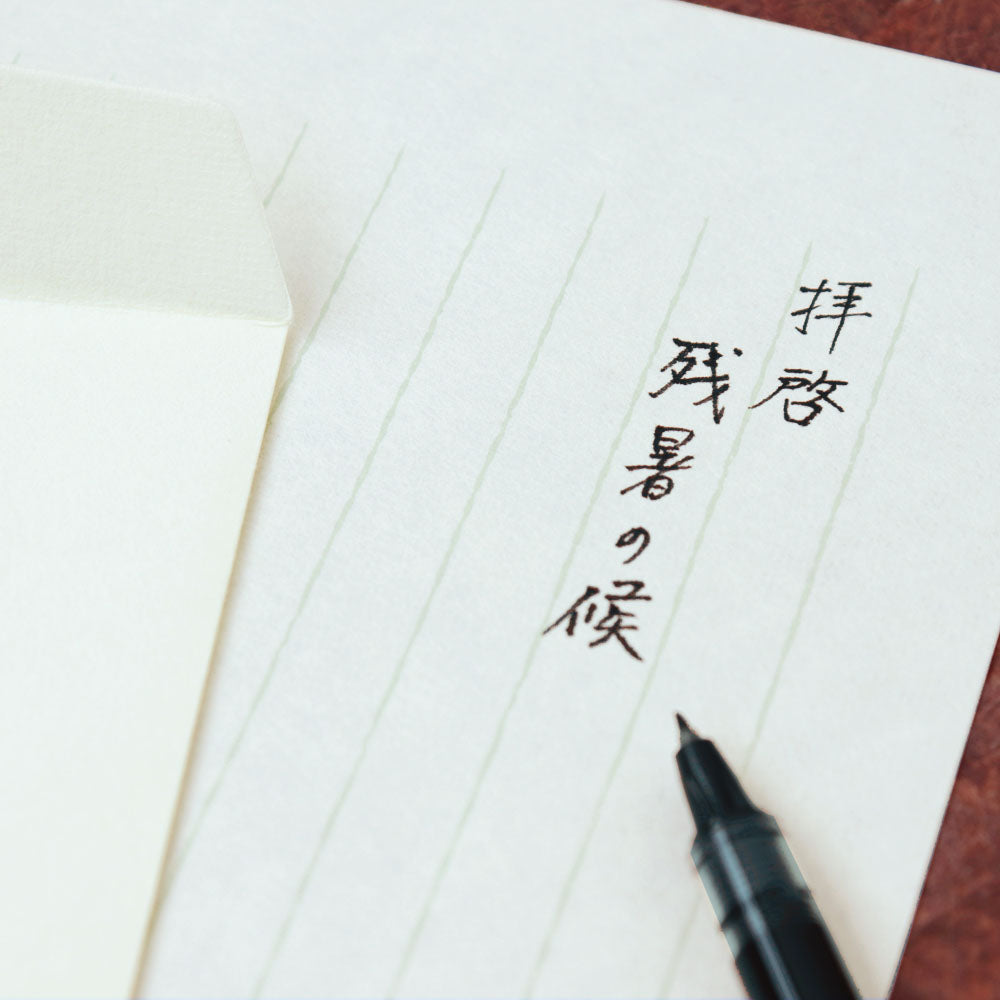 拝啓
残暑の候